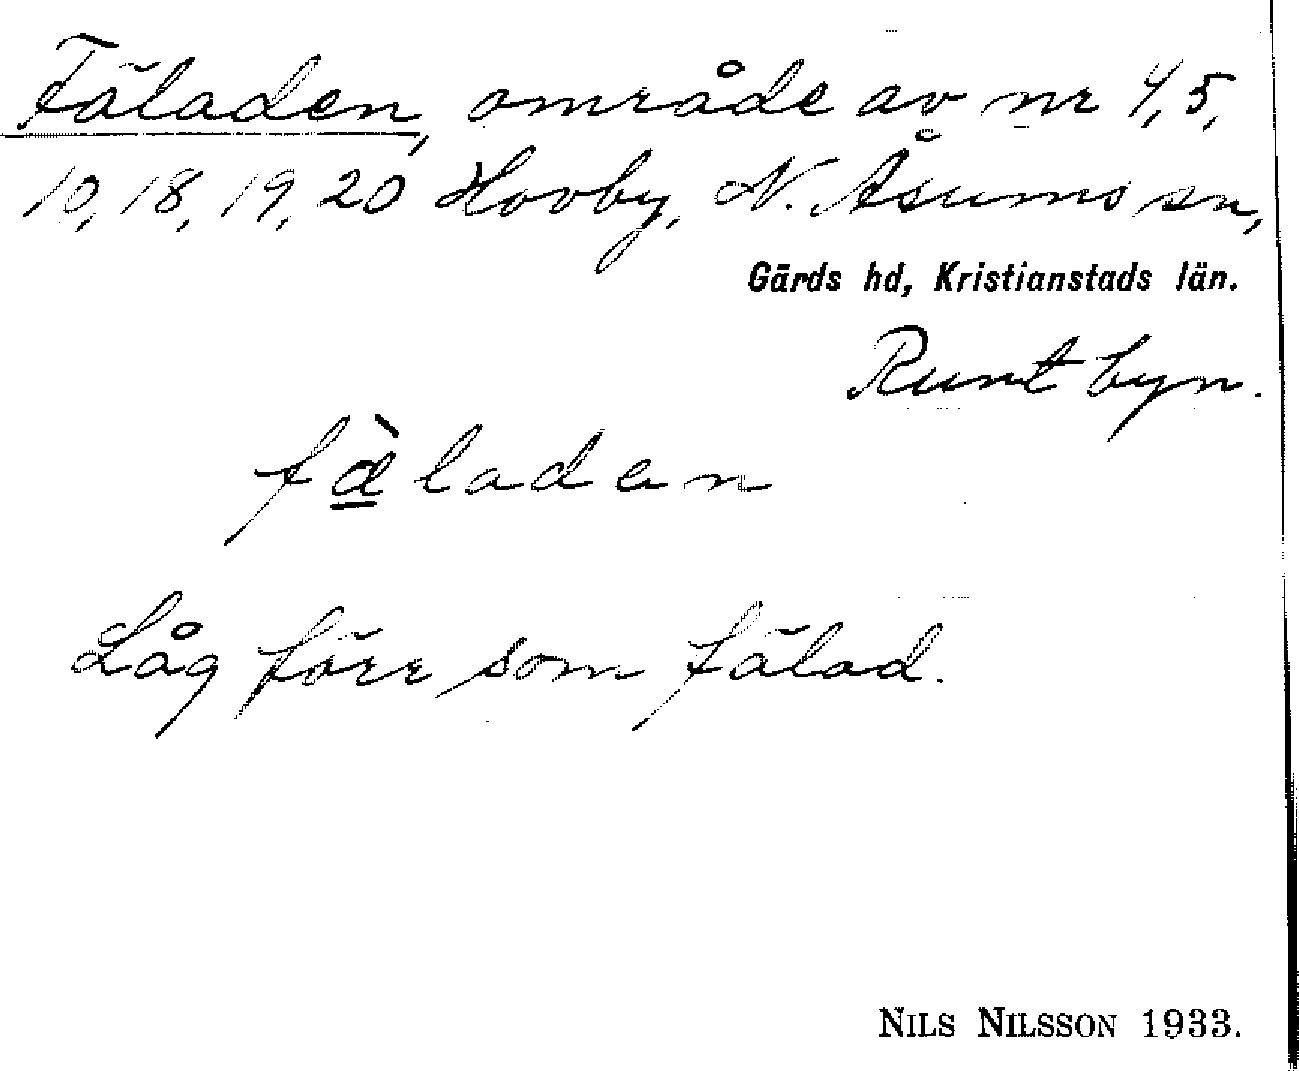 Fäladen, område av nr 4, 5,
10, 18, 19, 20 Hovby, N. Åsums sn,
Gärds hd, Kristianstads län.
Runt byn.
fæ̀laden
Låg förr som fälad.
NILS NILSSON 1933.